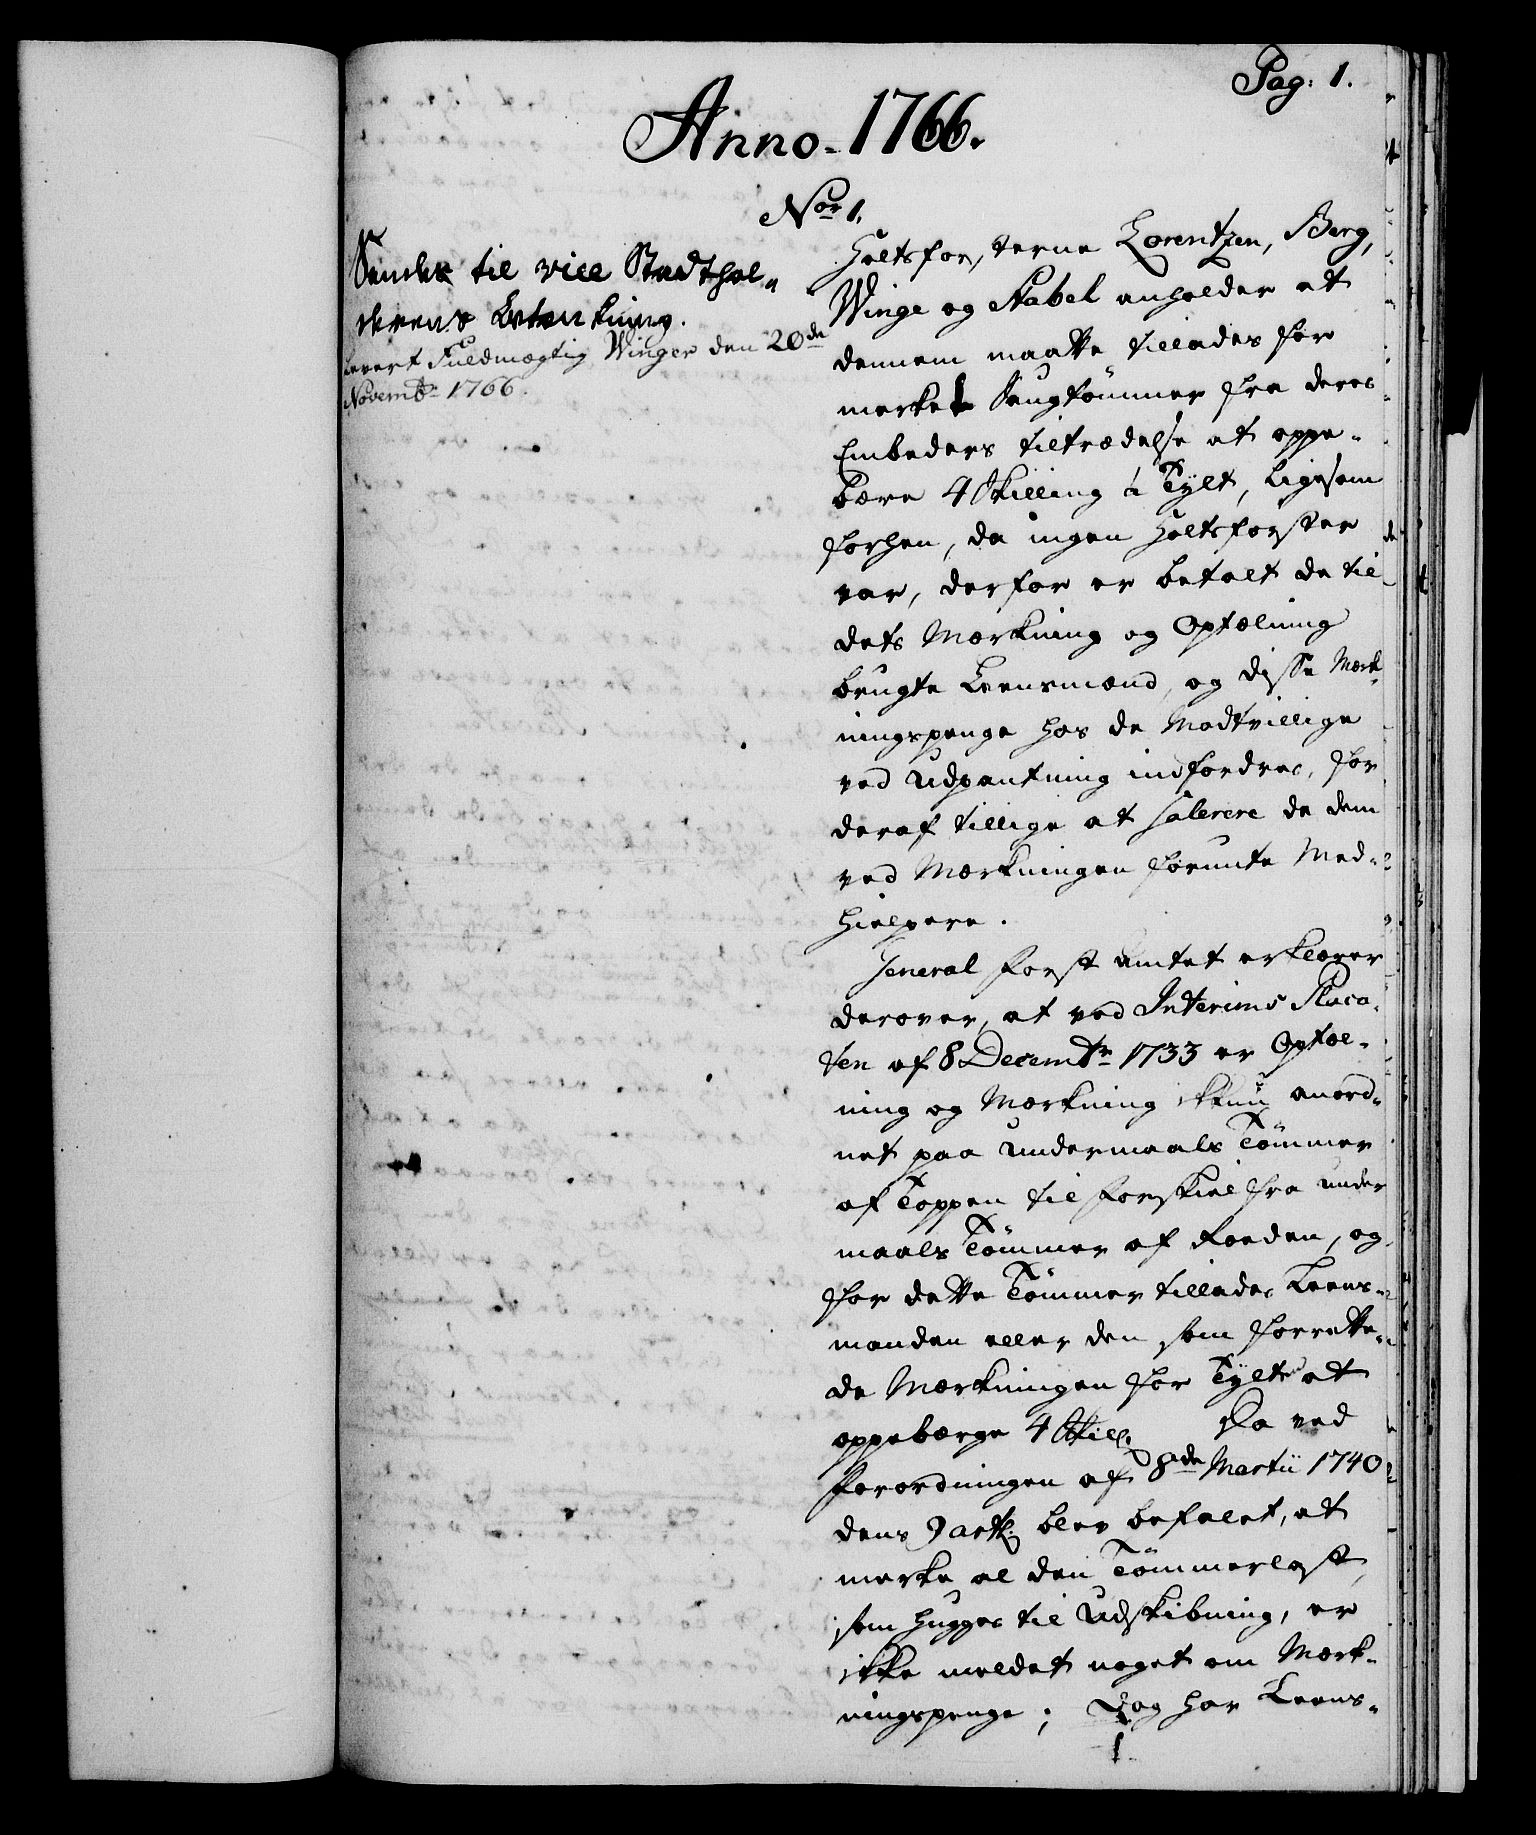 Pag: 1.
Anno 1766.
No 1.
Sendes til vice Stadthol-
derens Betænkning.
Levert Fuldmægtig Winger den 20de
Novembr 1766.
Holtsforsterne Lorentzen, Berg,
Winge og Stabel anholder at
dennem maatte tillades for
merket Saugtømmer fra deres
Embeders tiltrædelse at oppe-
bære 4 Skilling à Tylt, ligesom
forhen, da ingen Holtsforster
var, derfor er betalt de til
dets Mærkning og Optælning
brugte Leensmænd, og disse Mærk-
ningspenge hos de Modtvillige
ved Udpantning indfordres, for
deraf tillige at salerere de dem
ved Mærkningen forundte Med-
hielpere.
General Forst Amtet erklærer
derover, at ved Interims Placa-
ten af 8 Decembr 1733 er Optæl-
ning og Mærkning ikkun anord-
net paa undermaals Tømmer
af Toppen til forskiel fra under
maals Tømmer af Roeden, og
for dette Tømmer tillades Leens-
manden eller den som forrette-
de Mærkningen for Tylt at
oppebærge 4 Skill. Da ved
Forordningen af 8de Martii 1740
dens 9 artl. blev befalet, at
merke al den Tømmerlast,
som hugges til Udskibning, er
ikke meldet noget om Mærk-
ningspenge; Dog har Leens-
1